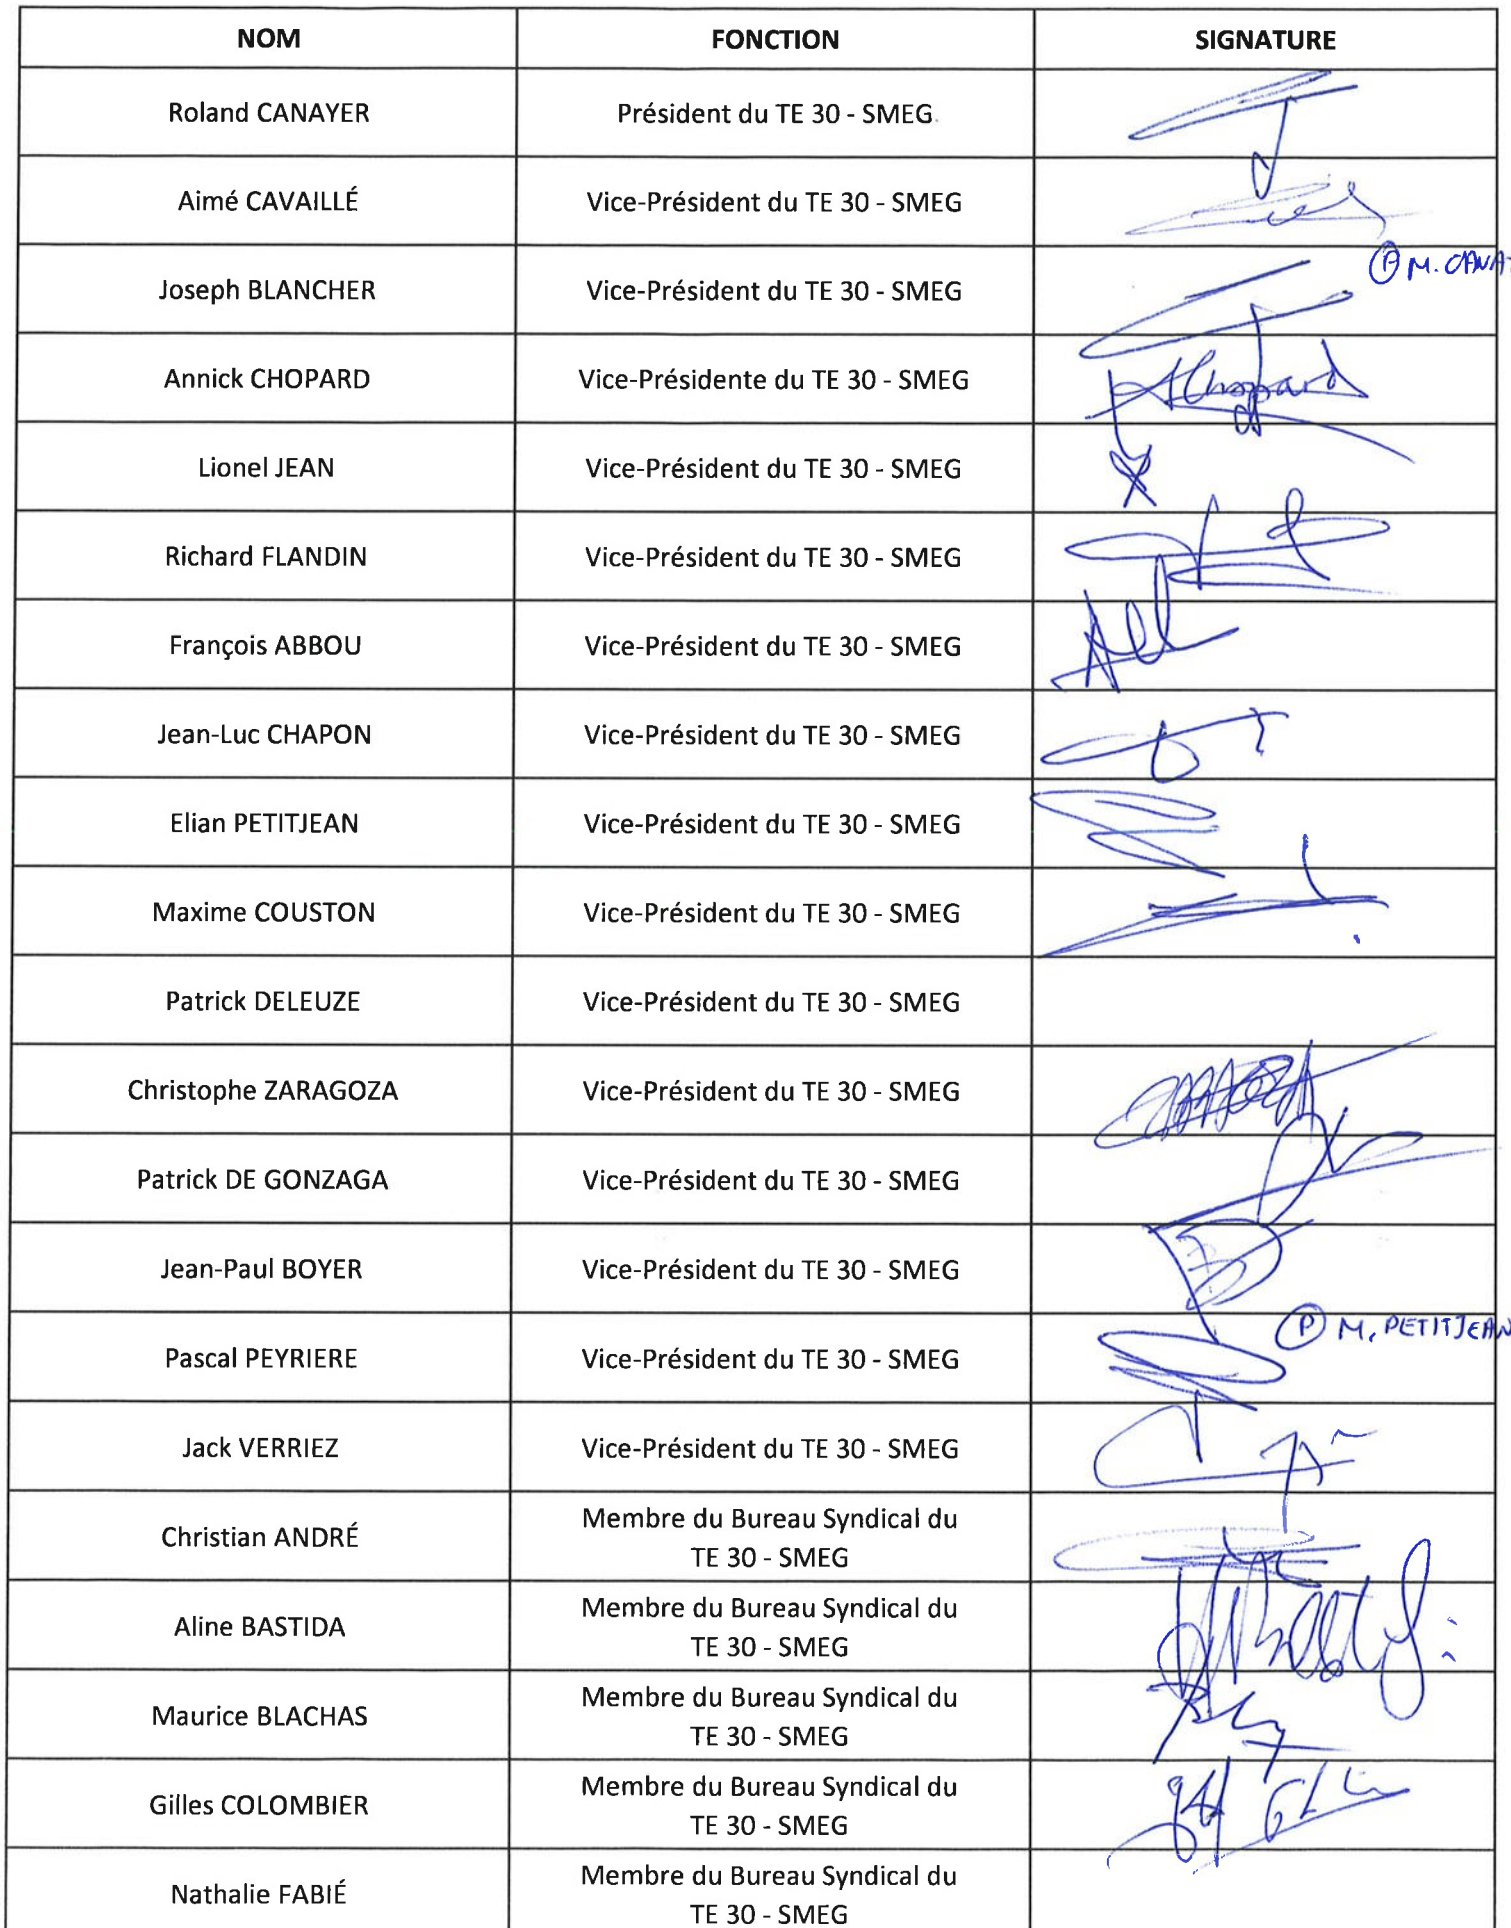 NOM FONCTION SIGNATURE
Roland CANAYER Président du TE 30 - SMEG
Aimé CAVAILLÉ Vice-Président du TE 30 - SMEG
P M. CANA
Joseph BLANCHER Vice-Président du TE 30 - SMEG
Annick CHOPARD Vice-Présidente du TE 30 - SMEG AChopard
Lionel JEAN Vice-Président du TE 30 - SMEG
Richard FLANDIN Vice-Président du TE 30 - SMEG
François ABBOU Vice-Président du TE 30 - SMEG
Jean-Luc CHAPON Vice-Président du TE 30 - SMEG
Elian PETITJEAN Vice-Président du TE 30 - SMEG
Maxime COUSTON Vice-Président du TE 30 - SMEG
Patrick DELEUZE Vice-Président du TE 30 - SMEG
Christophe ZARAGOZA Vice-Président du TE 30 - SMEG
Patrick DE GONZAGA Vice-Président du TE 30 - SMEG
Jean-Paul BOYER Vice-Président du TE 30 - SMEG
P M. PETITJEAN
Pascal PEYRIERE Vice-Président du TE 30 - SMEG
Jack VERRIEZ Vice-Président du TE 30 - SMEG
Christian ANDRÉ Membre du Bureau Syndical du
TE 30 - SMEG
Aline BASTIDA Membre du Bureau Syndical du
TE 30 - SMEG
Maurice BLACHAS Membre du Bureau Syndical du
TE 30 - SMEG
Gilles COLOMBIER Membre du Bureau Syndical du
TE 30 - SMEG
Nathalie FABIÉ Membre du Bureau Syndical du
TE 30 - SMEG